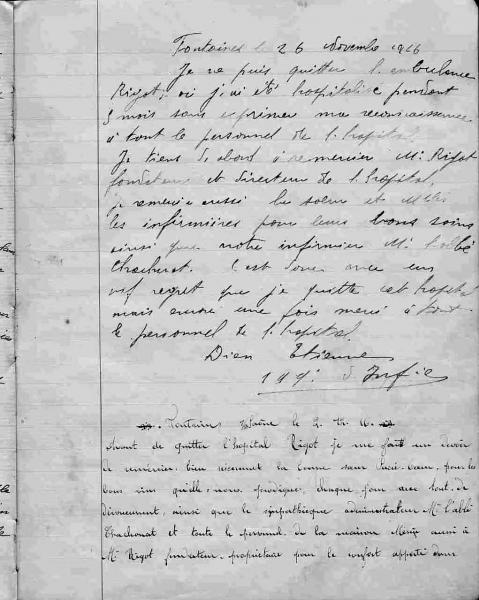 Fontaines le 26 Novembre 1916
Je ne puis quitter l'ambulance
Rigot, où j'ai été hospitalisé pendant
3 mois sans exprimer ma reconnaissance
à tout le personnel de l'hopital.
Je tiens d'abord à remercier Mr Rigot
fondateur et directeur de l'hopital,
je remercie aussi la soeur et Melles
les infirmières pour leurs bons soins
ainsi que notre infirmier Mr l'abbé
C'est donc avec un
vif regret que je quitte cet hopital
mais encore une fois merci à tout
le personnel de l'hopital.
Dien Etienne
149e d'Infie
Fontaines s/Saône le 2. 16.
Avant de quitter l'hopital Rigot je me fait un devoir
de remercier bien la bonne soeur Sacré-Coeur, pour les
bons soins qu'elle nous prodigue, chaque jour avec tout de
dévouement, ainsi que le sympathique administrateur Mr l'abbé
et toute le personnel de la maison Merci aussi à
Mr Rigot fondateur-propriétaire pour le confort apporté dans